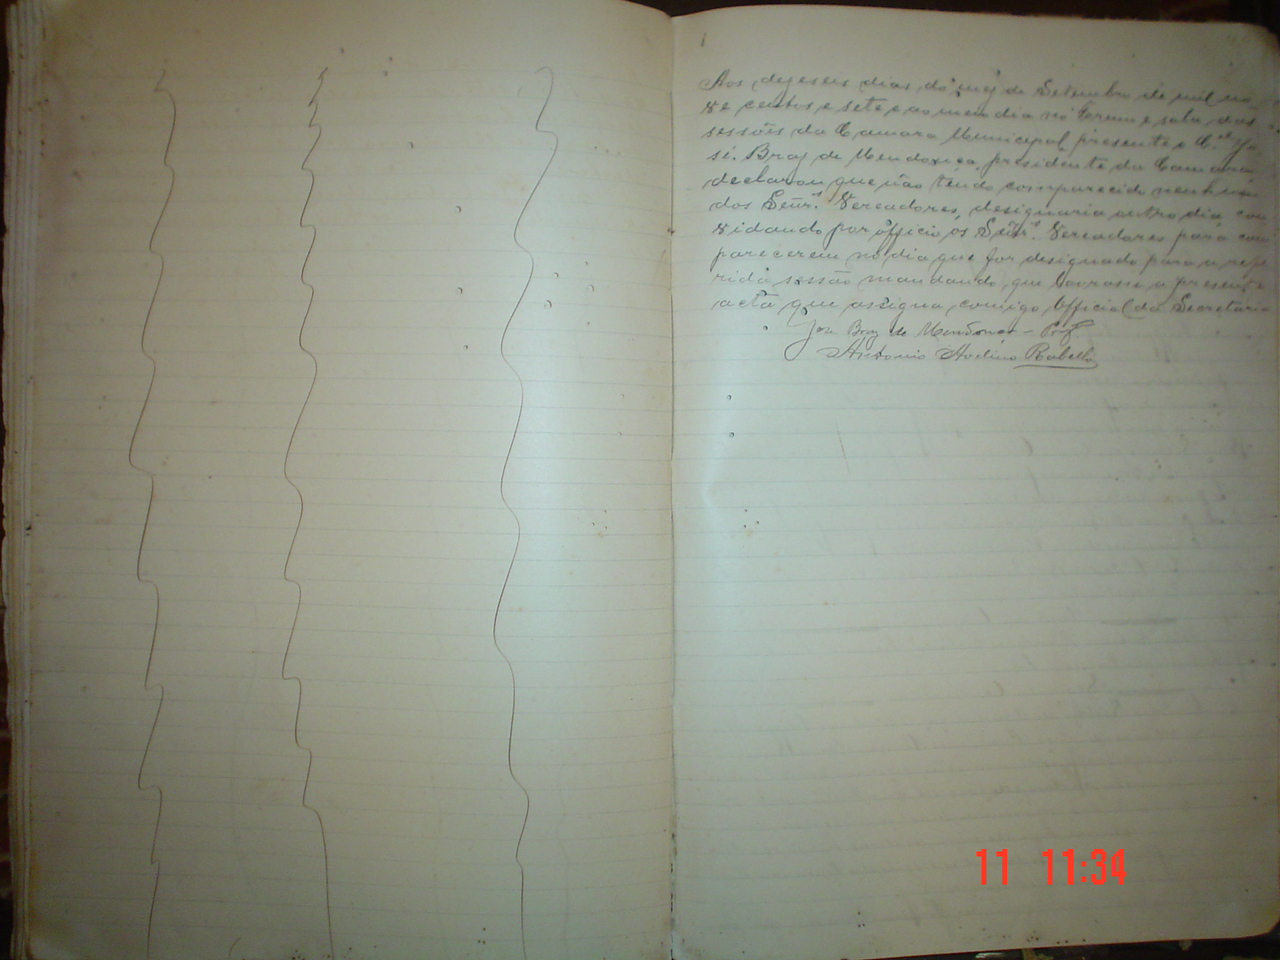 Aos dezeseis dias do mez de Setembro de mil no
ve centos e sete e ao meio dia no Forum e sala das
sessões da Camara Municipal presente o C.el Jo
sé Braz de Mendonça, presidente da Camara
declarou que não tendo comparecido nenhum
dos Senr.s Vereadores, designaria outro dia con
vidando por officio os Senr.s Vereadores para com
parecerem no dia que for designado para a refe
rida sessão mandando que lavrasse a presente
acta que assigna comigo Official da Secretaria
José Braz de Mendonça
Antonio Avelino Rabello
11 11:34